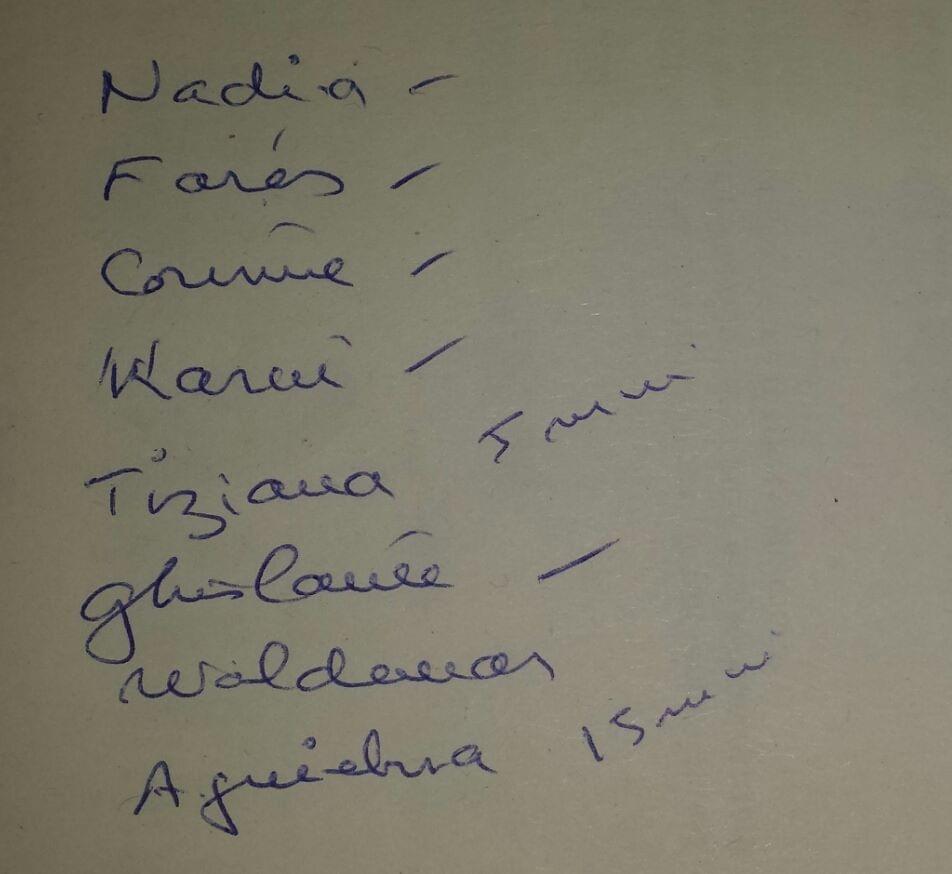 Nadia -
Farés -
Corinne -
Karim -
Tiziana 5 min
Ghislaine -
Waldemar
15 min